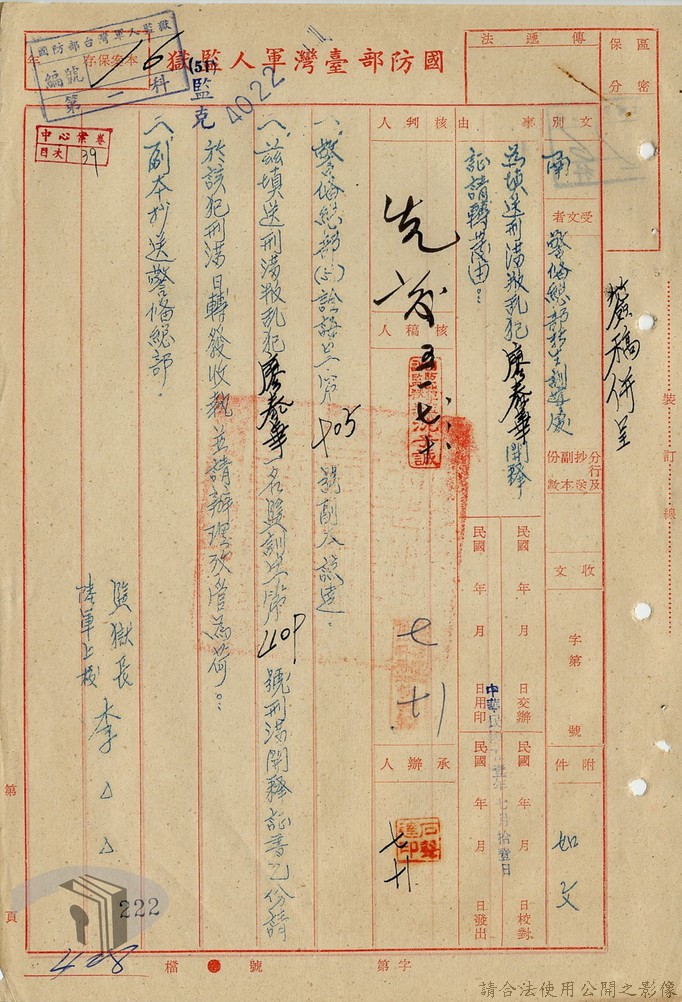 國防部臺灣軍人監獄
國防部台灣軍人監獄
編號
第二科
年
本案保存
(51)監克
4022
中心業卷
目次
39
傳遞法
區分
保密
簽稿併呈
裝
訂
線
文別
函
受文者
警備總部
事由
為填送刑滿叛乱犯廖泰華開釋
証請轉發由
核判人
核稿人
先發
五一、七、十
分行及
抄副本份數
收文
字第
號
附件
如文
民國 年 月 日交辦
民國 年 月 日用印
民國 年 月 日校對
民國 年 月 日發出
中華民國
年七月拾壹日
承辦人
七、十
一、警備總部
呈第405號副本敬悉。
一、茲填送刑滿叛乱犯廖泰華一名監訓
第
號刑滿開釋証書乙份請
於該犯刑滿日轉發收執並請辦理
為荷。
一、副本抄送警備總部。
監獄長
陸軍上校
李△△
第
頁
222
408
檔
號
字第
請合法使用公開之影像